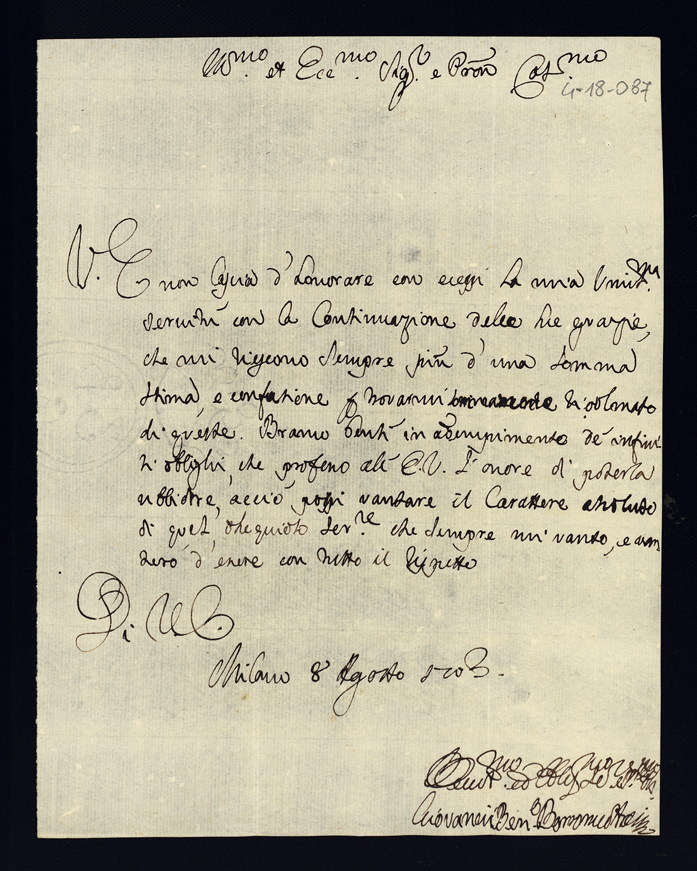 Ill.mo et Ecc.mo Sig.r e Pron Col.mo
4-18-087
V. E non lascia d'honorare con eccessi la mia humil.ma
servitù con la Continuazione delle sue grazie,
che mi riescono sempre più d'una somma
stima, e confusione p trovarmi ricolmato
di queste. Bramo però in adempimento de infini
ti oblighi, che professo all' E.V. l'onore di poterla
ubbidire, acciò possi vantare il Carattere assoluto
di quel, osequioso ser.re che sempre mi vanto, e am
d'essere con tutto il rispetto
Di V.E.
Milano 8 Agosto 1703.
Giovanni Ben.